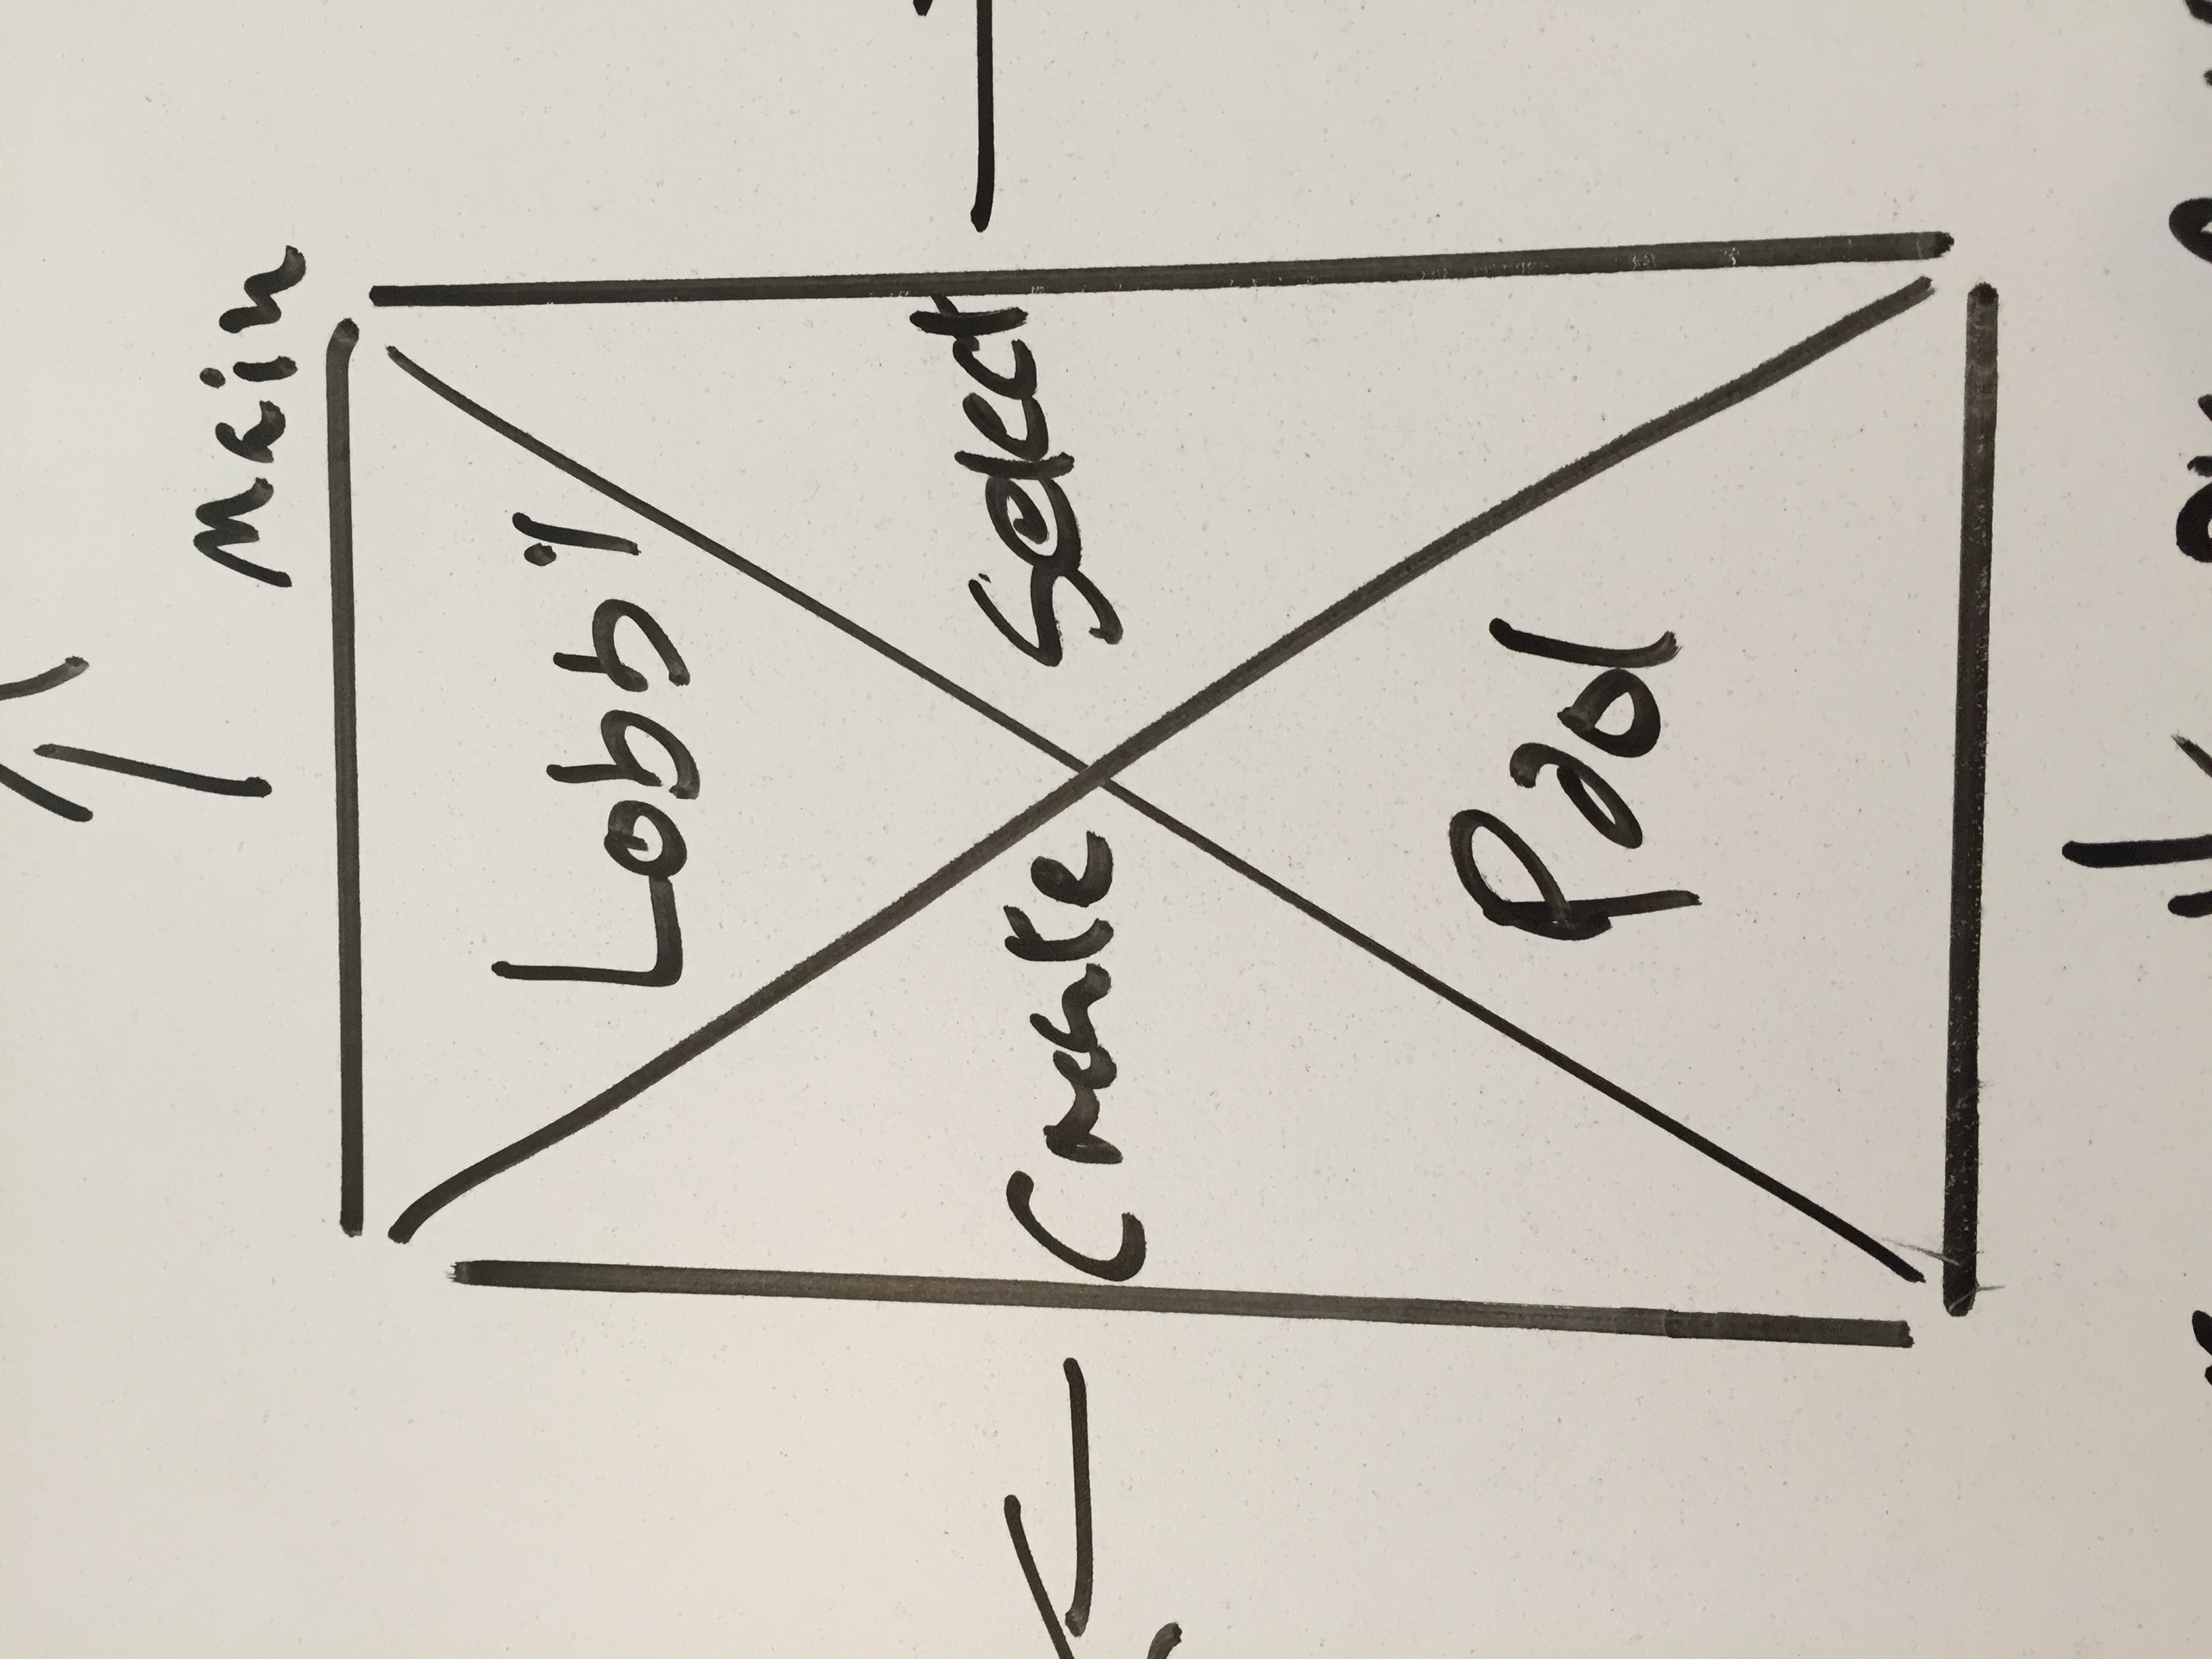 Main
Lobby
Create Select
Pool